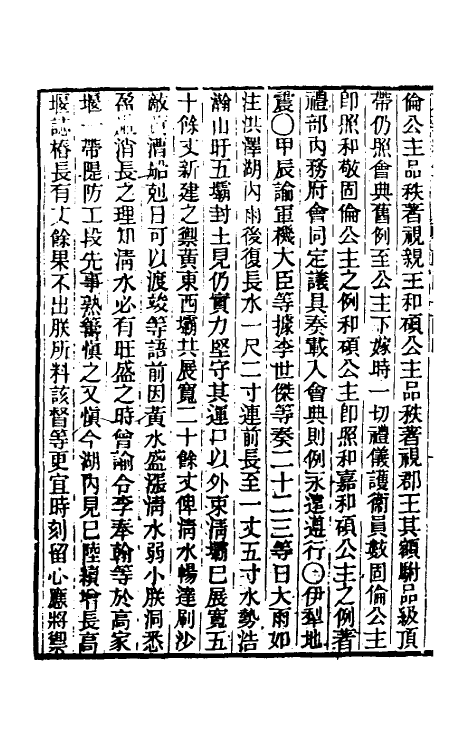 倫公主品秩著視親王和碩公主品秩著視郡王其額駙品級頂
帶仍照會典舊例至公主下嫁時一切禮儀護衛員數固倫公主
卽照和敬固倫公主之例和碩公主卽照和嘉和碩公主之例著
禮部內務府會同定議具奏載入會典則例永遠遵行○伊犁地
震○甲辰諭軍機大臣等據李世傑等奏二十二三等日大雨如
注洪澤湖內雨後復長水一尺二寸連前長至一丈五寸水勢浩
瀚山盱五壩封土見仍實力堅守其運口以外東淸壩已展寬五
十餘丈新建之禦黃東西壩共展寬二十餘丈俾淸水暢達刷沙
敵黃漕船剋日可以渡竣等語前因黃水盛漲淸水弱小朕洞悉
盈虛消長之理知淸水必有旺盛之時曾諭令李奉翰等於高家
堰一帶隄防工段先事熟籌愼之又愼今湖內見已陸續增長高
堰誌樁長有丈餘果不出朕所料該督等更宜時刻留心應將禦